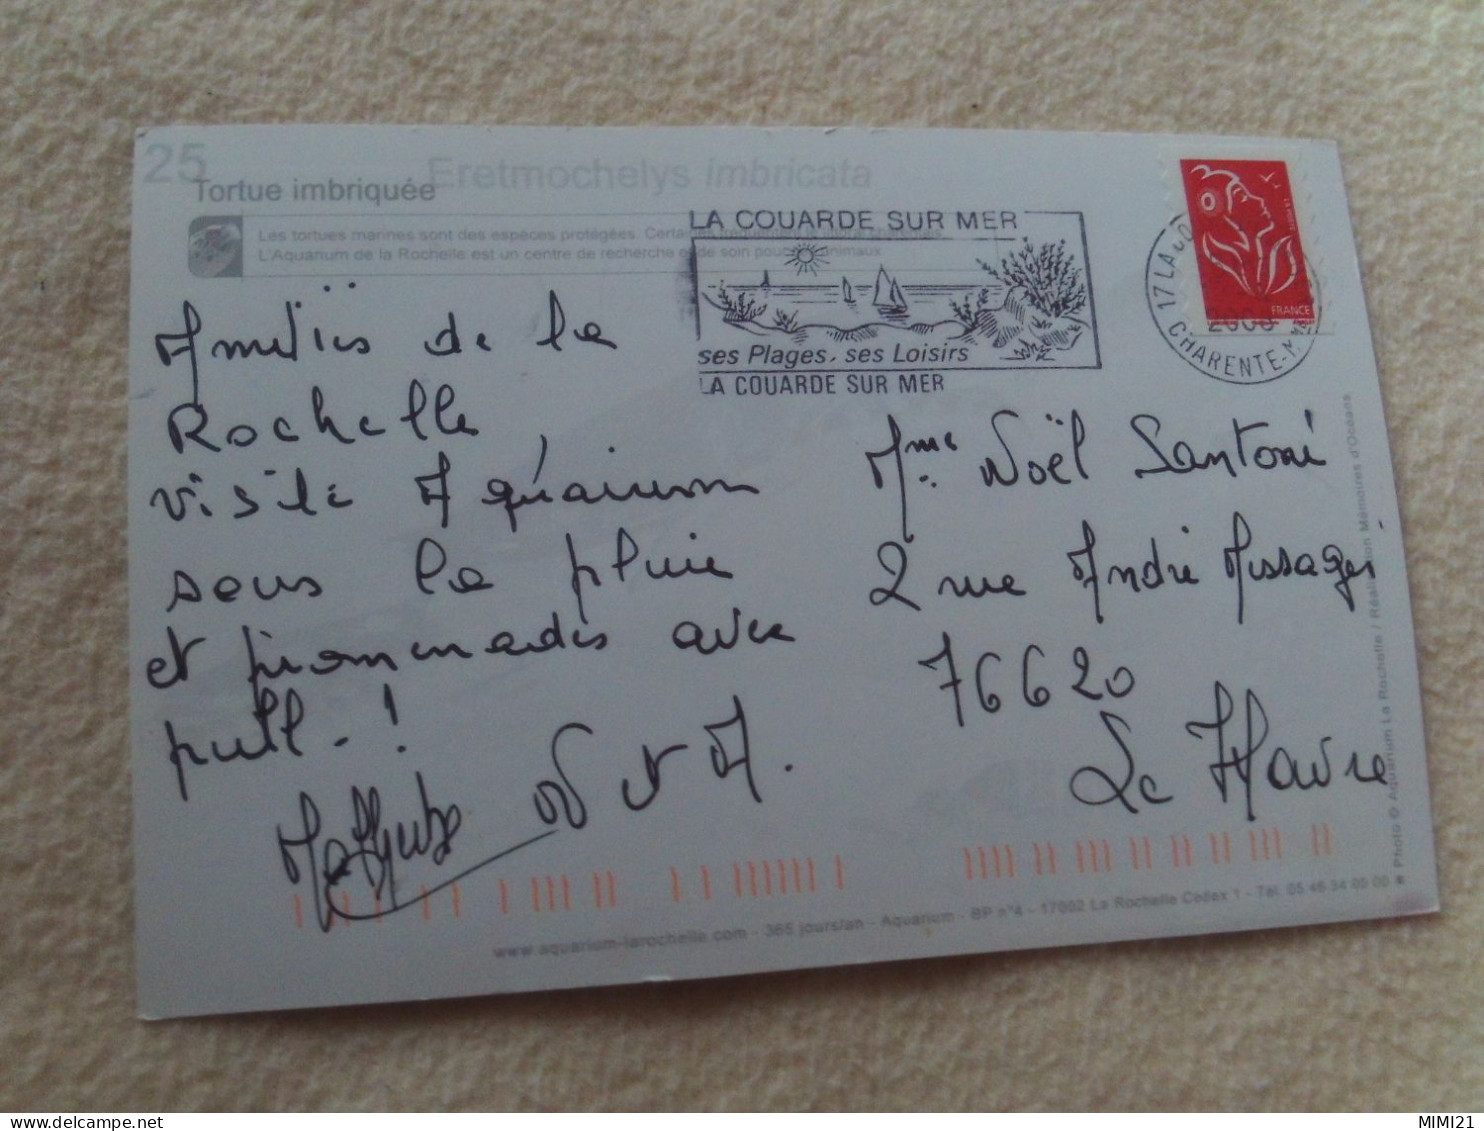 25
Eretmochelys imbricata
Tortue imbriquée
Les tortues marines sont des espèces protégées.
L'Aquarium de la Rochelle est un centre de recherche et de soin pour animaux
LA COUARDE SUR MER
ses Plages, ses Loisirs
LA COUARDE SUR MER
17 LA CO
CHARENTE-M
FRANCE
Amitiés de la
Rochelle
visite Aquairium
sous la pluie
et promenades avec
pull - !
N et A.
Mme Noël Santoni
2 rue André Messager
76620
Le Havre
www.aquarium-larochelle.com - 365 jours/an - Aquarium - BP n°4 - 17002 La Rochelle Cedex 1 - Tél. 05 46 34 00 00
Photo © Aquarium La Rochelle / Réalisation Mémoires d'Océans
MIMI21